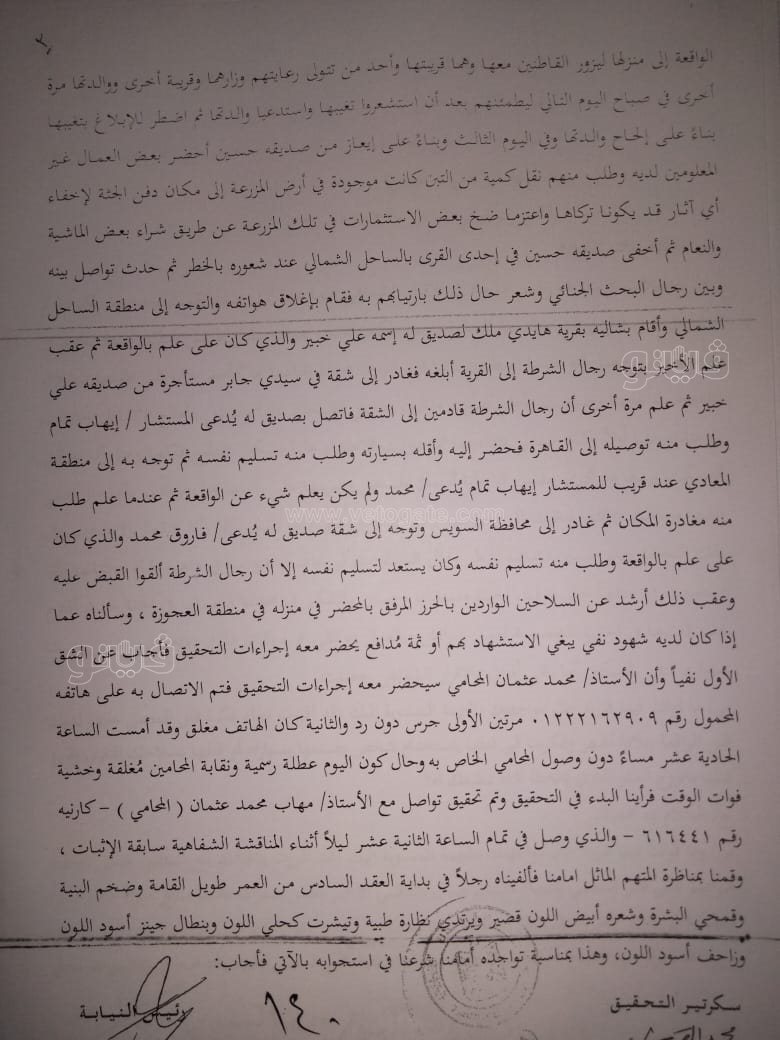 ٣
الواقعة إلى منزلها ليزور القاطنين معها وهما قريبتها وأحد من تتولى رعايتهم وزارهما وقريبة أخرى ووالدتها مرة
أخرى في صباح اليوم التالي ليطمئنهم بعد أن استشعروا تغيبها واستدعيا والدتها ثم اضطر للإبلاغ بتغيبها
بناءً على إلحاح والدتها وفي اليوم الثالث وبناءً على إيعاز من صديقه حسين أحضر بعض العمال غير
المعلومين لديه وطلب منهم نقل كمية من التبن كانت موجودة في أرض المزرعة إلى مكان دفن الجثة لإخفاء
أي آثار قد يكونا تركاها واعتزما ضخ بعض الاستثمارات في تلك المزرعة عن طريق شراء بعض الماشية
والنعام ثم أخفى صديقه حسين في إحدى القرى بالساحل الشمالي عند شعوره بالخطر ثم حدث تواصل بينه
وبين رجال البحث الجنائي وشعر حال ذلك بارتيابهم به فقام بإغلاق هواتفه والتوجه إلى منطقة الساحل
الشمالي وأقام بشاليه بقرية هايدي ملك لصديق له إسمه علي خبير والذي كان على علم بالواقعة ثم عقب
علم الأخير بتوجه رجال الشرطة إلى القرية أبلغه فغادر إلى شقة في سيدي جابر مستأجرة من صديقه علي
خبير ثم علم مرة أخرى أن رجال الشرطة قادمين إلى الشقة فاتصل بصديق له يُدعى المستشار / إيهاب تمام
وطلب منه توصيله إلى القاهرة فحضر إليه وأقله بسيارته وطلب منه تسليم نفسه ثم توجه به إلى منطقة
المعادي عند قريب للمستشار إيهاب تمام يُدعى/ محمد ولم يكن يعلم شيء عن الواقعة ثم عندما علم طلب
منه مغادرة المكان ثم غادر إلى محافظة السويس وتوجه إلى شقة صديق له يُدعى/ فاروق محمد والذي كان
على علم بالواقعة وطلب منه تسليم نفسه وكان يستعد لتسليم نفسه إلا أن رجال الشرطة ألقوا القبض عليه
وعقب ذلك أرشد عن السلاحين الواردين بالحرز المرفق بالمحضر في منزله في منطقة العجوزة ، وسألناه عما
إذا كان لديه شهود نفي يبغي الاستشهاد بهم أو ثمة مُدافع يحضر معه إجراءات التحقيق فأجاب عن الشق
الأول نفياً وأن الأستاذ/ محمد عثمان المحامي سيحضر معه إجراءات التحقيق فتم الاتصال به على هاتفه
المحمول رقم ٠١٢٢٢١٦٢٩٠٩ مرتين الأولى جرس دون رد والثانية كان الهاتف مغلق وقد أمست الساعة
الحادية عشر مساءً دون وصول المحامي الخاص به وحال كون اليوم عطلة رسمية ونقابة المحامين مُغلقة وخشية
فوات الوقت فرأينا البدء في التحقيق وتم تحقيق تواصل مع الأستاذ/ مهاب محمد عثمان ( المحامي ) – كارنيه
رقم ٦١٦٤٤١ – والذي وصل في تمام الساعة الثانية عشر ليلاً أثناء المناقشة الشفاهية سابقة الإثبات ،
وقمنا بمناظرة المتهم الماثل امامنا فألفيناه رجلاً في بداية العقد السادس من العمر طويل القامة وضخم البنية
وقمحي البشرة وشعره أبيض اللون قصير ويرتدي نظارة طبية وتيشرت كحلي اللون وبنطال جينز أسود اللون
وزاحف أسود اللون، وهذا بمناسبة تواجده أمامنا شرعنا في استجوابه بالآتي فأجاب:
سكرتير التحقيق
رئيس النيابة
١٤٠
ڤيتو
www.vetogate.com
ڤيتو